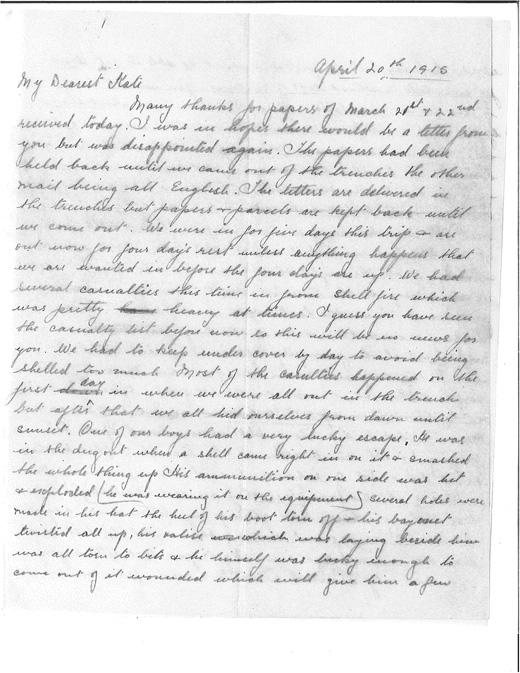 April 20th 1916
My Dearest Kate
Many thanks for papers of March 21st & 22nd
received today. I was in hopes there would be a letter from
you but was disappointed again. The papers had been
held back until we came out of the trenches the other
mail being all English. The letters are delivered in
the trenches but papers & parcels are kept back until
we come out. We were in for five days this trip & are
out now for four day's rest unless anything happens that
we are wanted in before the four days are up. We had
several casualties this time in from shell fire which
was pretty heavy at times. I guess you have seen
the casualty list before now so this will be no news for
you. We had to keep under cover by day to avoid being
shelled too much Most of the casulties happened on the
first day in when we were all out in the trench
but after that we all hid ourselves from dawn until
sunset. One of our boys had a very lucky escape. He was
in the dug out when a shell came right in on it & smashed
the whole thing up His ammunition on one side was hit
& exploded (he was wearing it on the equipment) several holes were
made in his hat the heel of his boot torn off & his bayonet
twisted all up, his valise which was laying beside him
was all torn to bits & he himself was lucky enough to
come out of it wounded which will give him a few